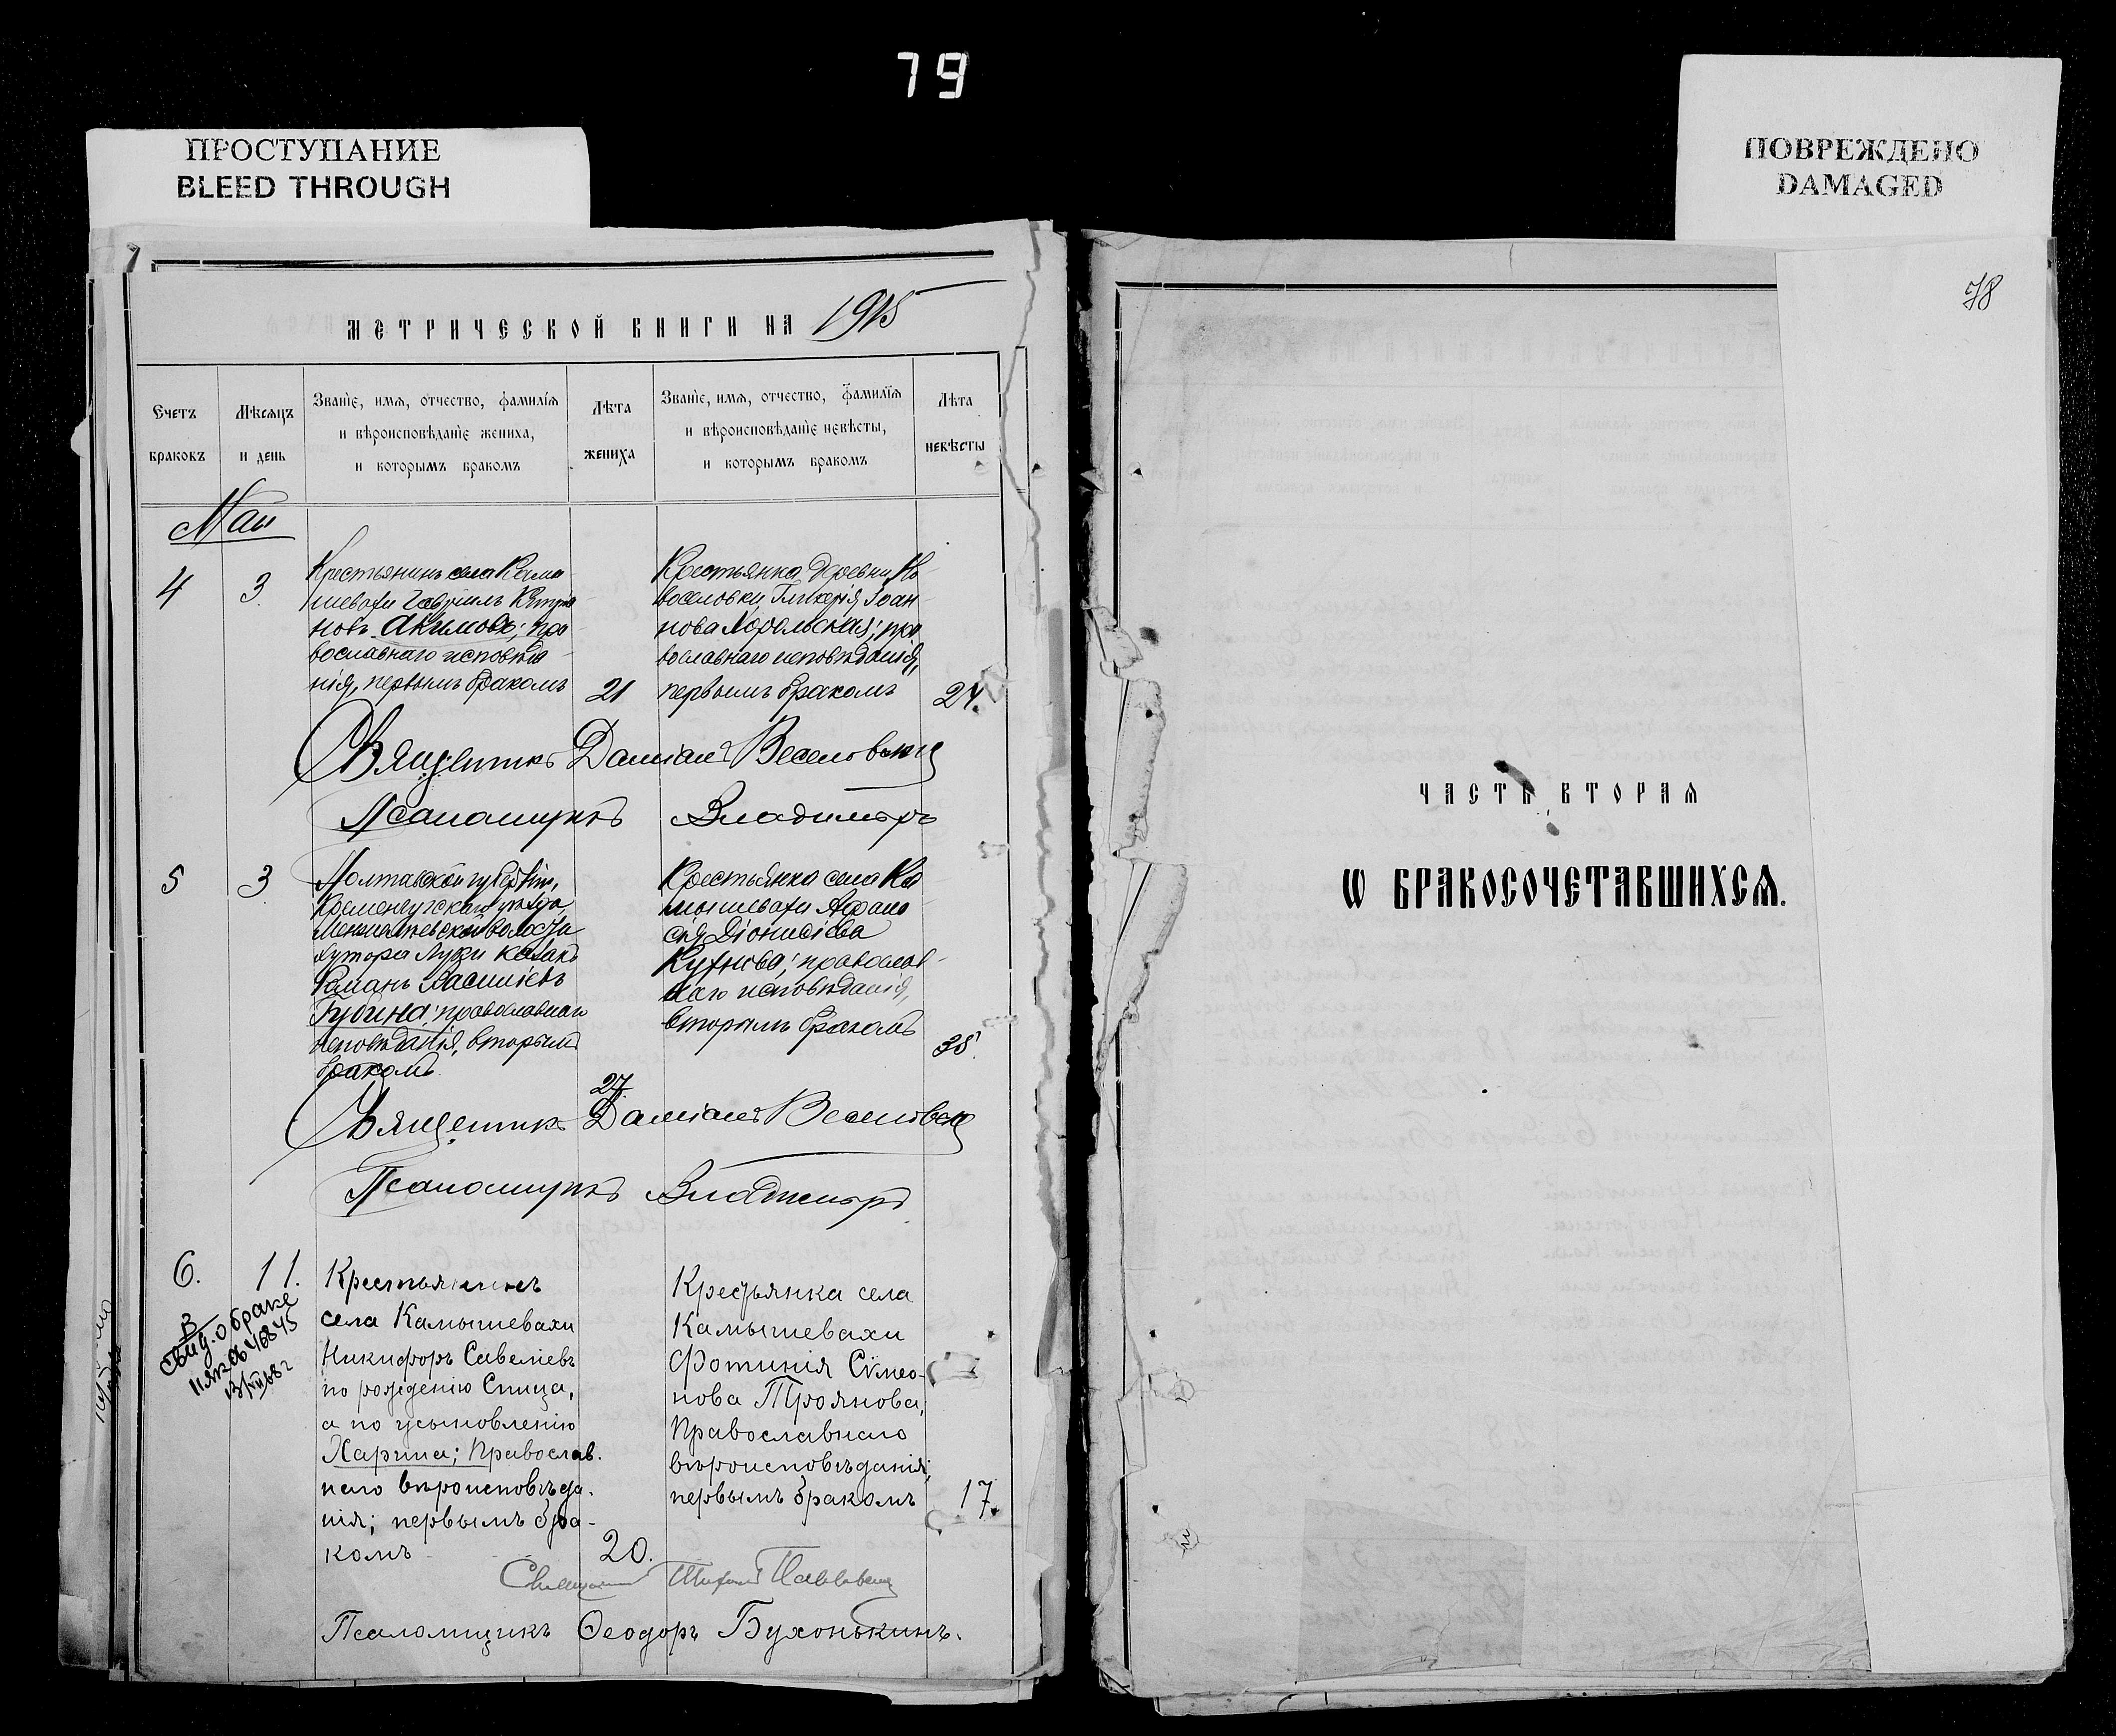 79
ПРОСТУПАНИЕ
BLEED THROUGH
ПОВРЕЖДЕНО
DAMAGED
МЕТРИЧЕСКОЙ КНИГИ НА 1915
Счетъ браковъ
Мѣсяцъ и день
Званіе, имя, отчество, фамилія
и вѣроисповѣданіе жениха,
и которымъ бракомъ
Лѣта жениха
Званіе, имя, отчество, фамилія
и вѣроисповѣданіе невѣсты,
и которымъ бракомъ
Лѣта невѣсты
Май
4
3.
Крестьянинъ села Камы-
шевахи Гавріилъ
новъ Акимовъ; пра-
вославнаго исповѣда-
нія, первымъ бракомъ
21
Крестьянка деревни Но-
воселовки Гликерія Іоан-
нова Хорольская; пра-
вославнаго исповѣданія,
первымъ бракомъ
24.
Священникъ Даміанъ Веселовскій
Псаломщикъ Владиміръ
5
3
Полтавской губерніи,
Кременчугскаго уѣзда,
волости
хутора казакъ
Романъ Василіевъ
Губина; православнаго
исповѣданія, вторымъ
бракомъ.
27.
Крестьянка села Ка-
мышевахи Афана-
сія Діонисіева
Кухнова; православ-
наго исповѣданія,
вторымъ бракомъ
38.
Священникъ Даміанъ Веселовскій
Псаломщикъ Владиміръ
6.
11.
В
Свид. о браке
13/VI 68 г
Крестьянинъ
села Камышевахи
Никифоръ Савеліевъ
по рожденію Спица,
а по усыновленію
Харина; Православ-
наго вѣроисповѣда-
нія; первымъ бра-
комъ
20.
Крестьянка села
Камышевахи
Фотинія Сѵмео-
нова Троянова,
Православнаго
вѣроисповѣданія;
первымъ бракомъ
17.
Священникъ
Псаломщикъ Ѳеодоръ Бухонькинъ.
78
ЧАСТЬ ВТОРАЯ
Ѡ БРАКОСОЧЕТАВШИХСЯ.